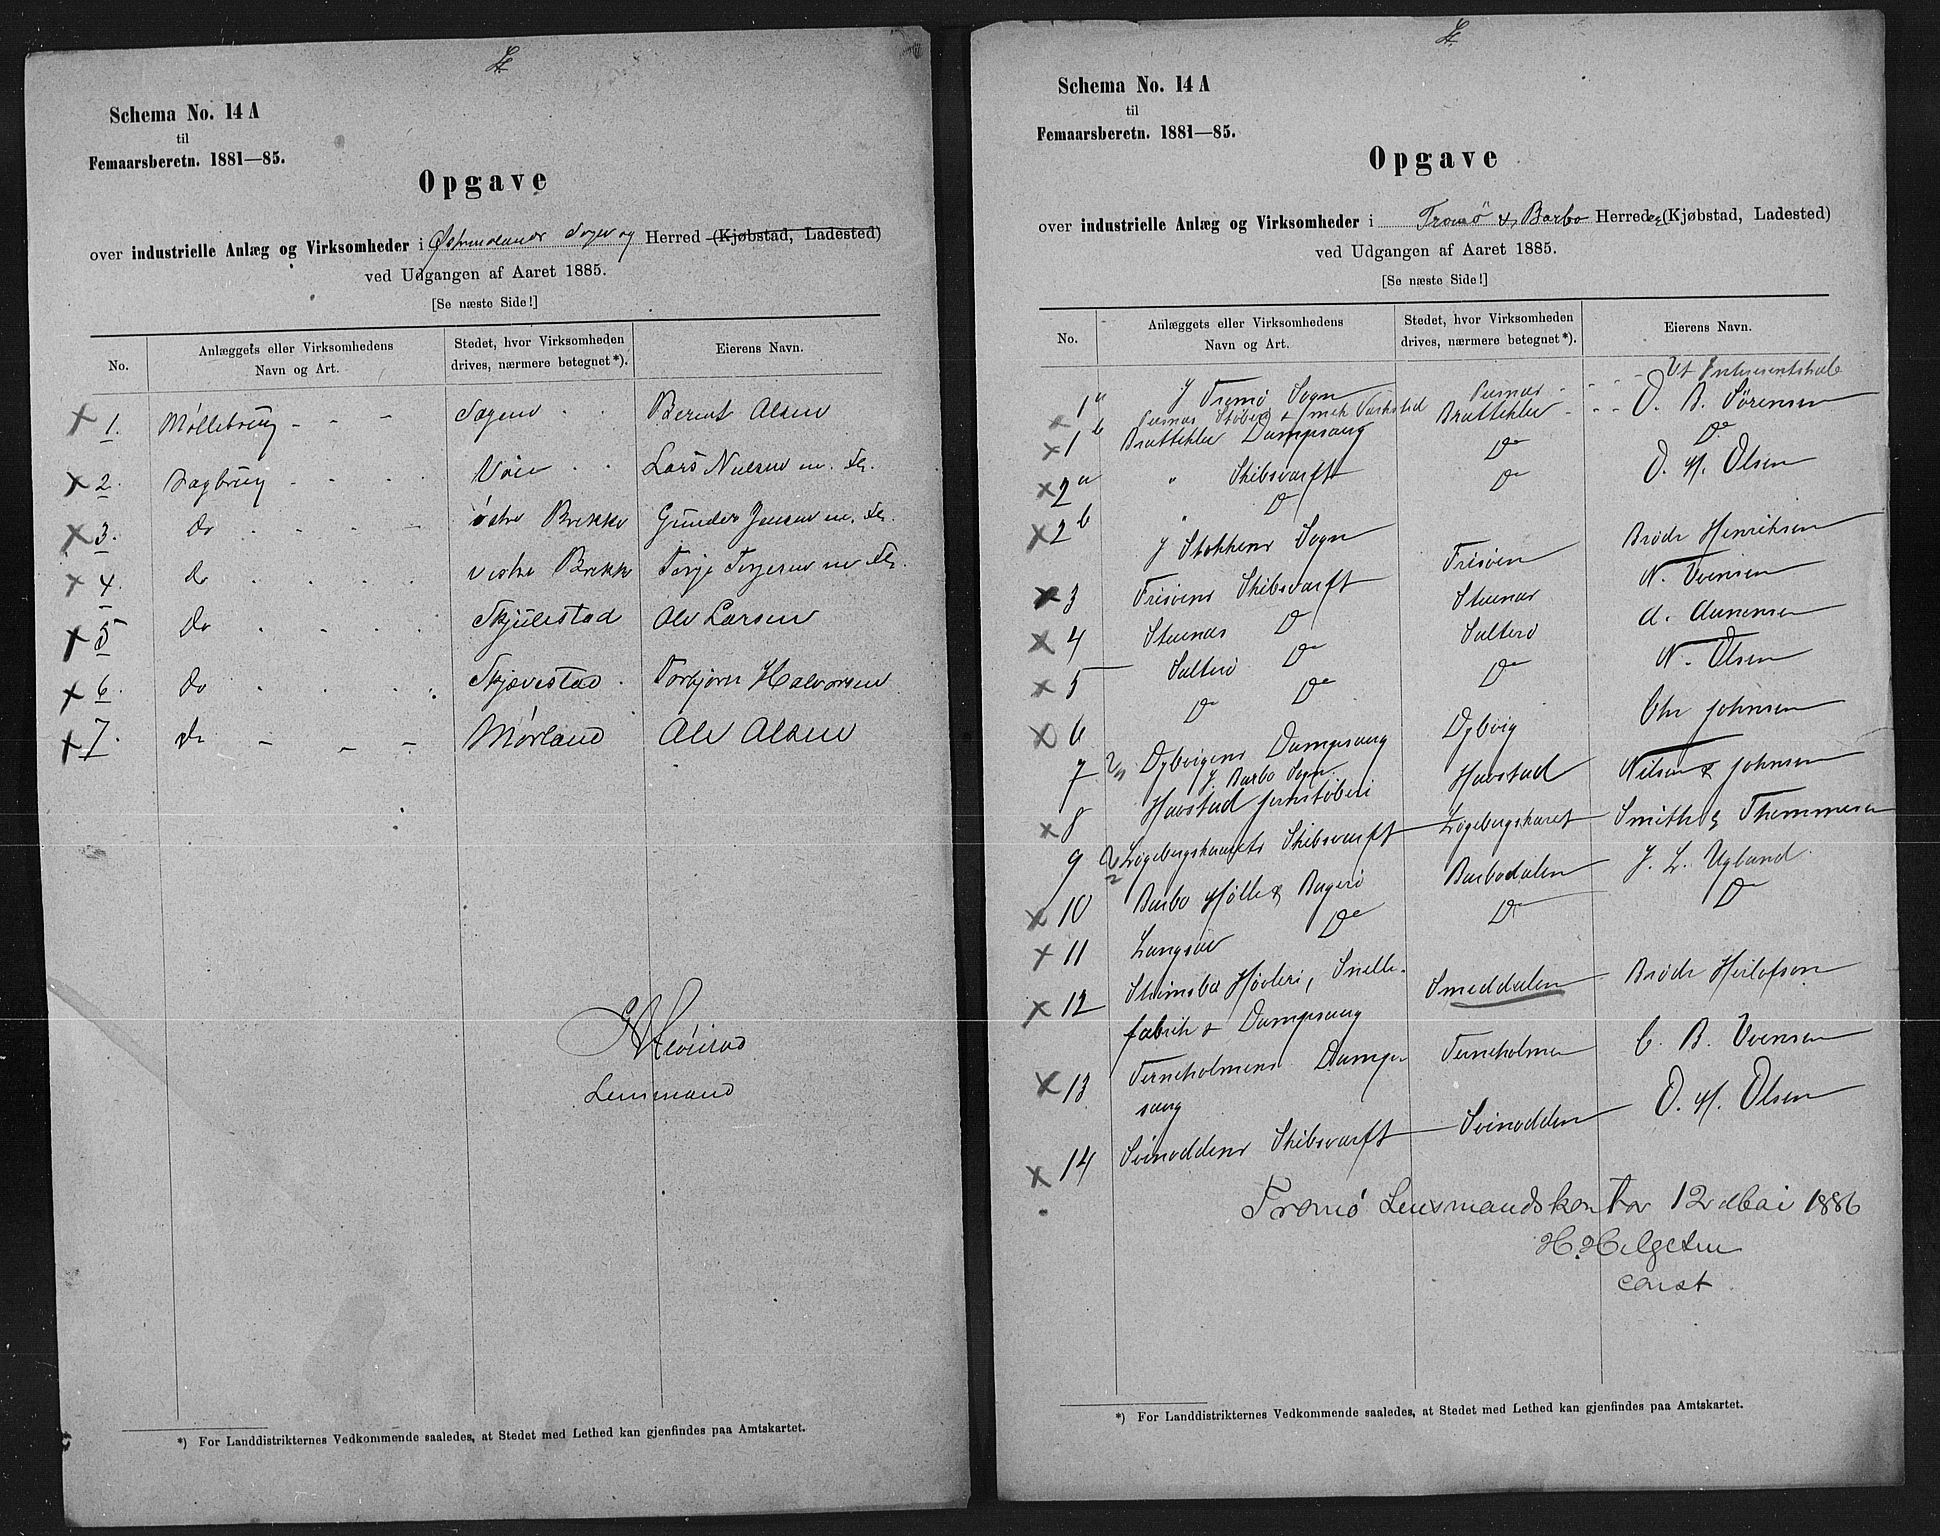 Schema No. 14 A
til
Femaarsberetn. 1881—85.
Opgave
over industrielle Anlæg og Virksomheder i Østremolands Sogn og Herred (Kjøbstad, Ladested)
ved Udgangen af Aaret 1885.
[Se næste Side!]
No. Anlæggets eller Virksomhedens Navn og Art. Stedet, hvor Virksomheden drives, nærmere betegnet*). Eierens Navn.
1. Møllebrug Berent Alsen
2. Sagbrug Lars m. Fl.
3. do østre Brekke Gunder Jensen m. Fl.
4. do vestre Brekke Terje Terjesen m Fl.
5 do Skjulestad Alv Larsen
6. do Skjævestad Torbjørn Halvorsen
7. do Mørland Alv Alsen
Lensmand
*) For Landdistrikternes Vedkommende saaledes, at Stedet med Lethed kan gjenfindes paa Amtskartet.
Schema No. 14 A
til
Femaarsberetn. 1881—85.
Opgave
over industrielle Anlæg og Virksomheder i Tromø & Barbo Herreder (Kjøbstad, Ladested)
ved Udgangen af Aaret 1885.
[Se næste Side!]
No. Anlæggets eller Virksomhedens Navn og Art. Stedet, hvor Virksomheden drives, nærmere betegnet*). Eierens Navn.
I Tromø Sogn
1a Pusnæs Støberi & mek Værksted Pusnæs Et Interessentskab
1b Brattekler Dampsaug Brattekler O. B. Sørensen
2a " Skibsværft Do Do
2b " Do Do O. M. Olsen
I Stokkens Sogn
3 Frisøens Skibsværft Frisøen Brødr Henriksen
4 Stuenæs Do Stuenæs N. Evensen
5 Salterø Do Salterø A. Aanensen
6 Do Do Do N. Olsen
7 Dybvigens Dampsaug Dybvig Chr Johnsen
I Barbo Sogn.
8 Havstad Jernstøberi Havstad Nilsen & Johnsen
9 Løgebergskaarets Skibsværft Løgebergskaret Smith & Thommesen
10 Barbo Mølle & Bageri Barbodalen J. L. Ugland.
11 Langsæ Do Do Do
12 Strømsbo Høvleri, Snelle-
fabrik & Dampsaug Smeddalen Brødr Herlofson
13 Terneholmens Damp-
saug Terneholmen C. B. Evensen
14 Svinoddens Skibsværft Svinodden O. M. Olsen
Tromø Lensmandskontor 12 Mai 1886
H. Helgesen
const.
*) For Landdistrikternes Vedkommende saaledes, at Stedet med Lethed kan gjenfindes paa Amtskartet.